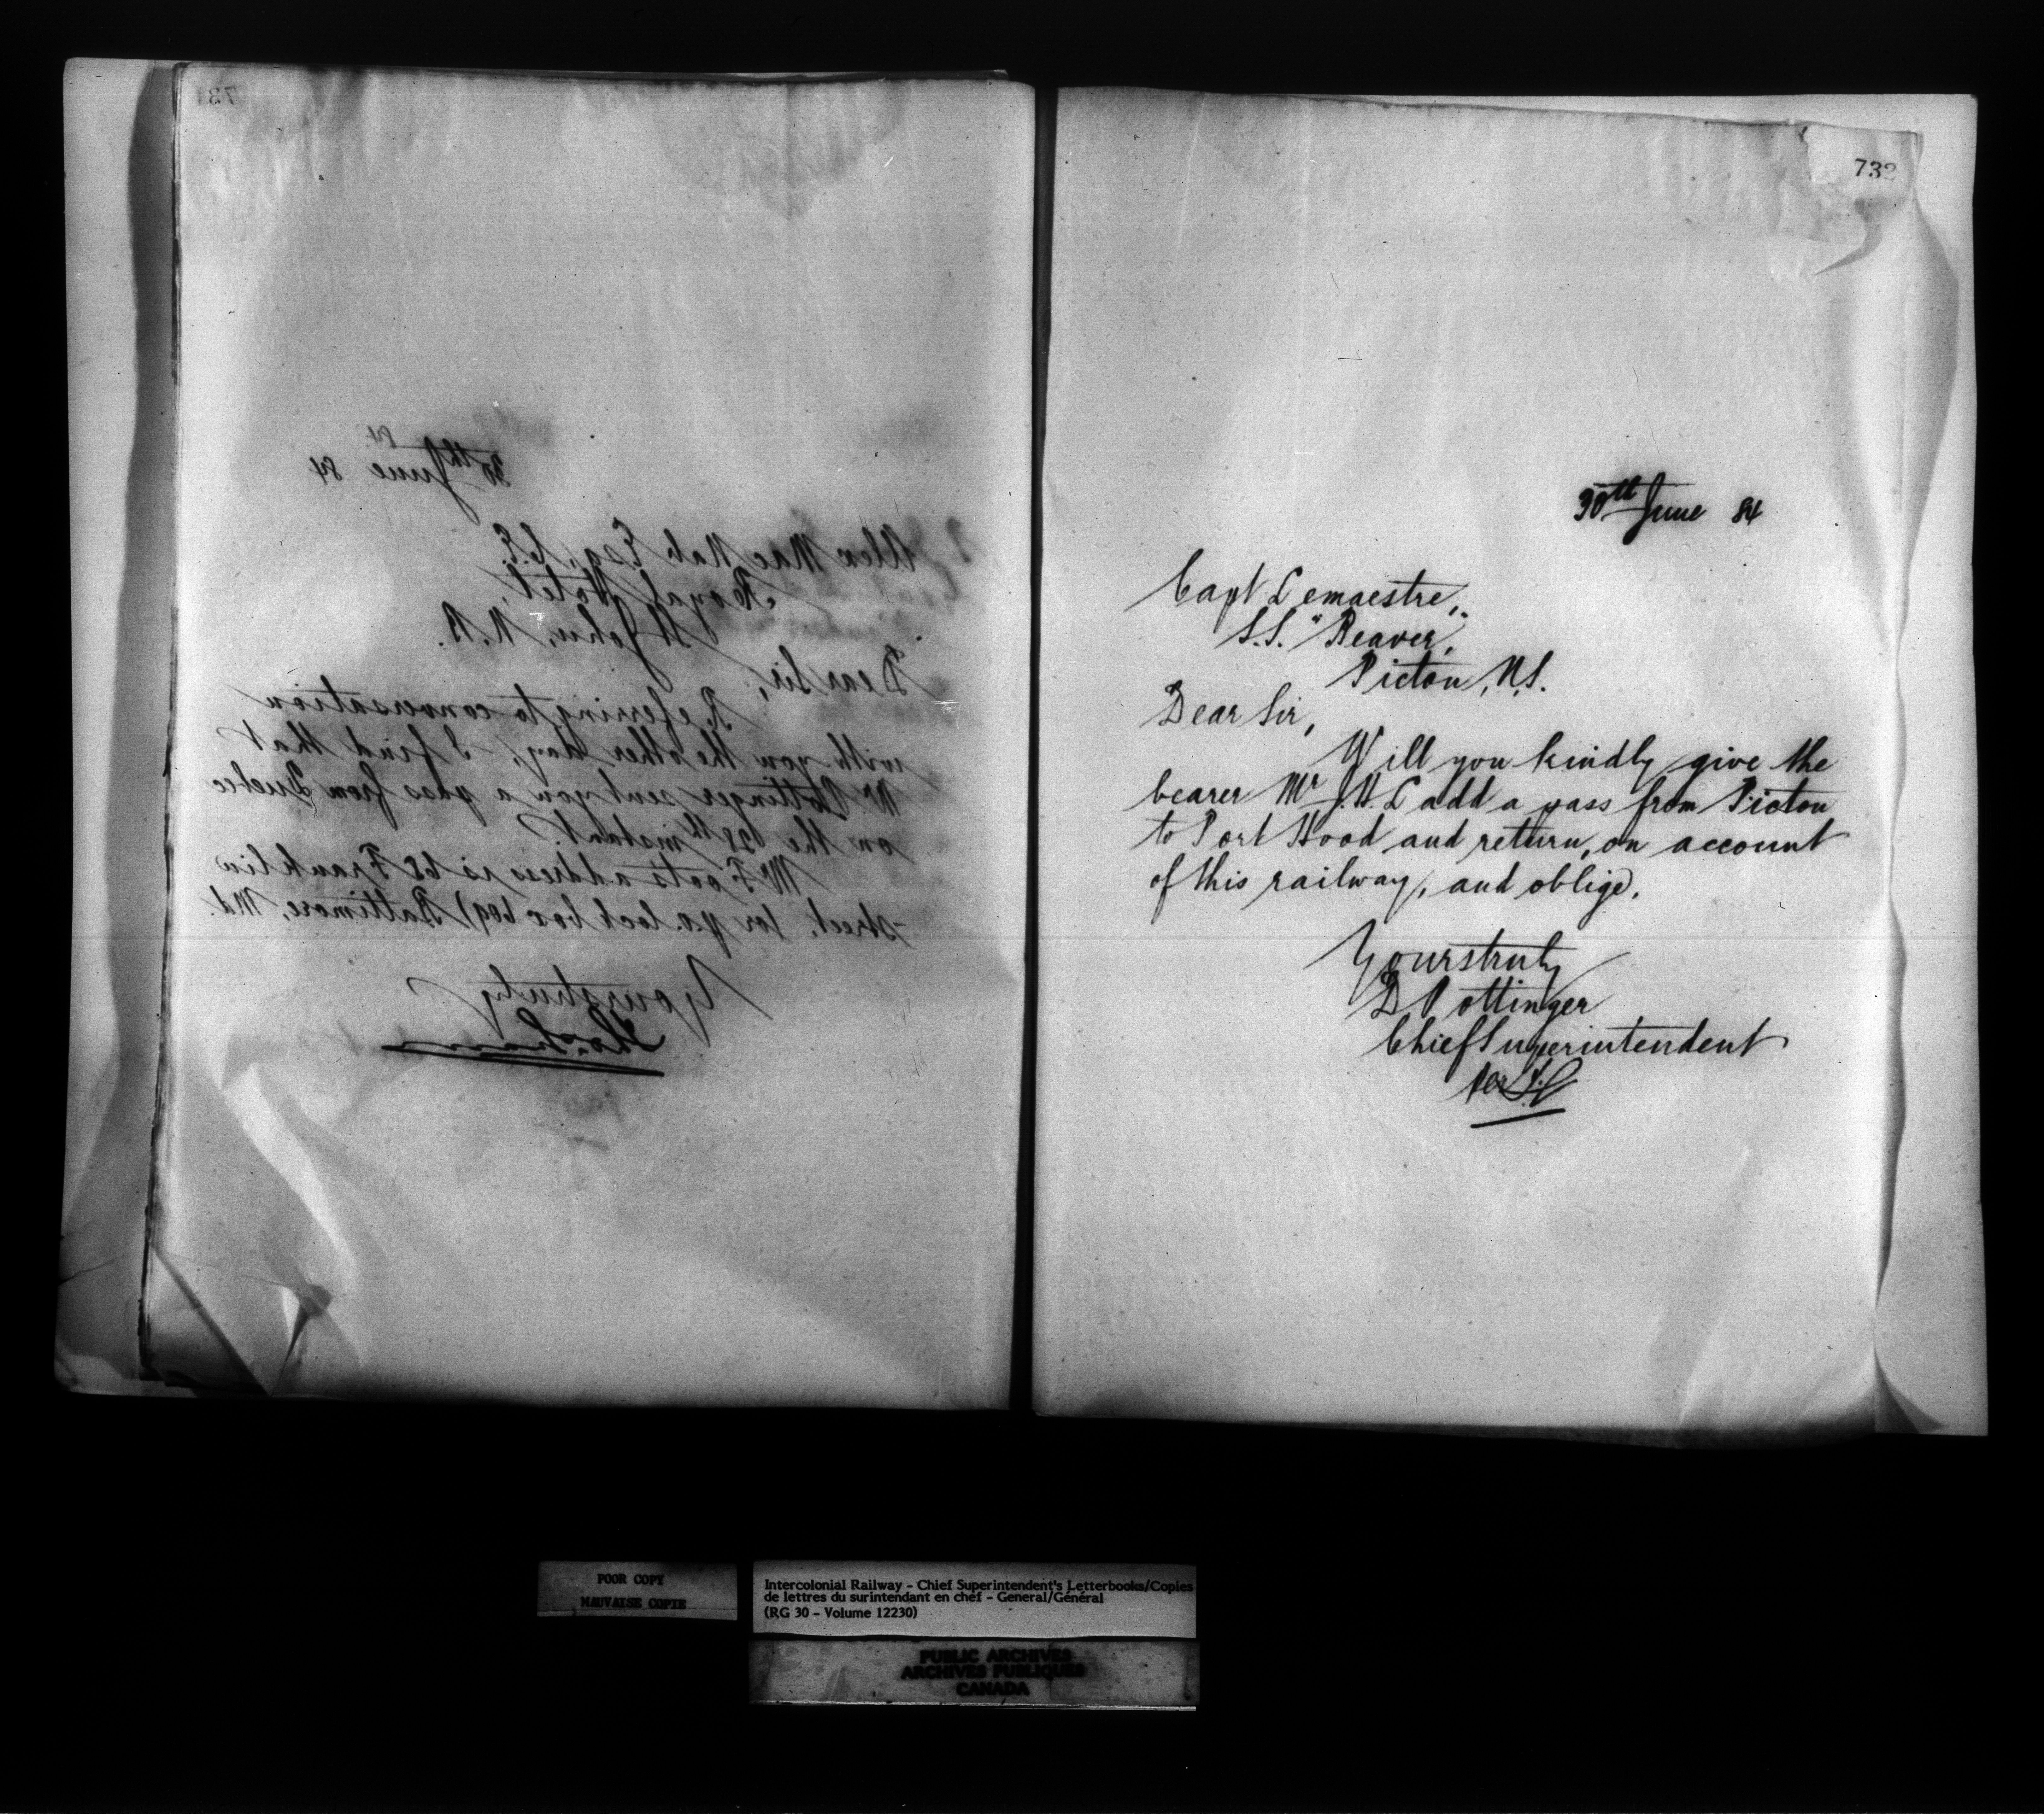 731
30th June 84
84
Alex Mac Nab Esq, C.E.
Royal Hotel,
St John, N.B.
Dear Sir,
Referring to conversation
with you the other day, I find that
Mr Pottinger sent you a pass from Quebec
on the 28th instant.
Mr Foots address is 68 Franklin
street, (or p.o. lock box 609) Baltimore, Md.
Yours truly
732
30th June 84
Capt Lemaestre,
S.S. "Beaver",
Pictou, N.S.
Dear Sir,
Will you kindly give the
bearer Mr J.H. Ladd a pass from Pictou
to Port Hood and return, on account
of this railway, and oblige.
Yours truly
D Pottinger
Chief Superintendent
Per
POOR COPY
MAUVAISE COPIE
Intercolonial Railway – Chief Superintendent's Letterbooks/Copies
de lettres du surintendant en chef – General/Général
(RG 30 – Volume 12230)
PUBLIC ARCHIVES
ARCHIVES PUBLIQUES
CANADA